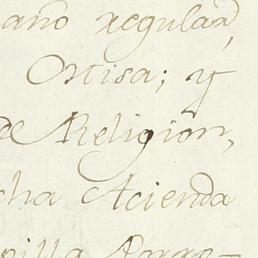 ano regular,
Ortisa; y
de Religion,
cha Acienda
pilla